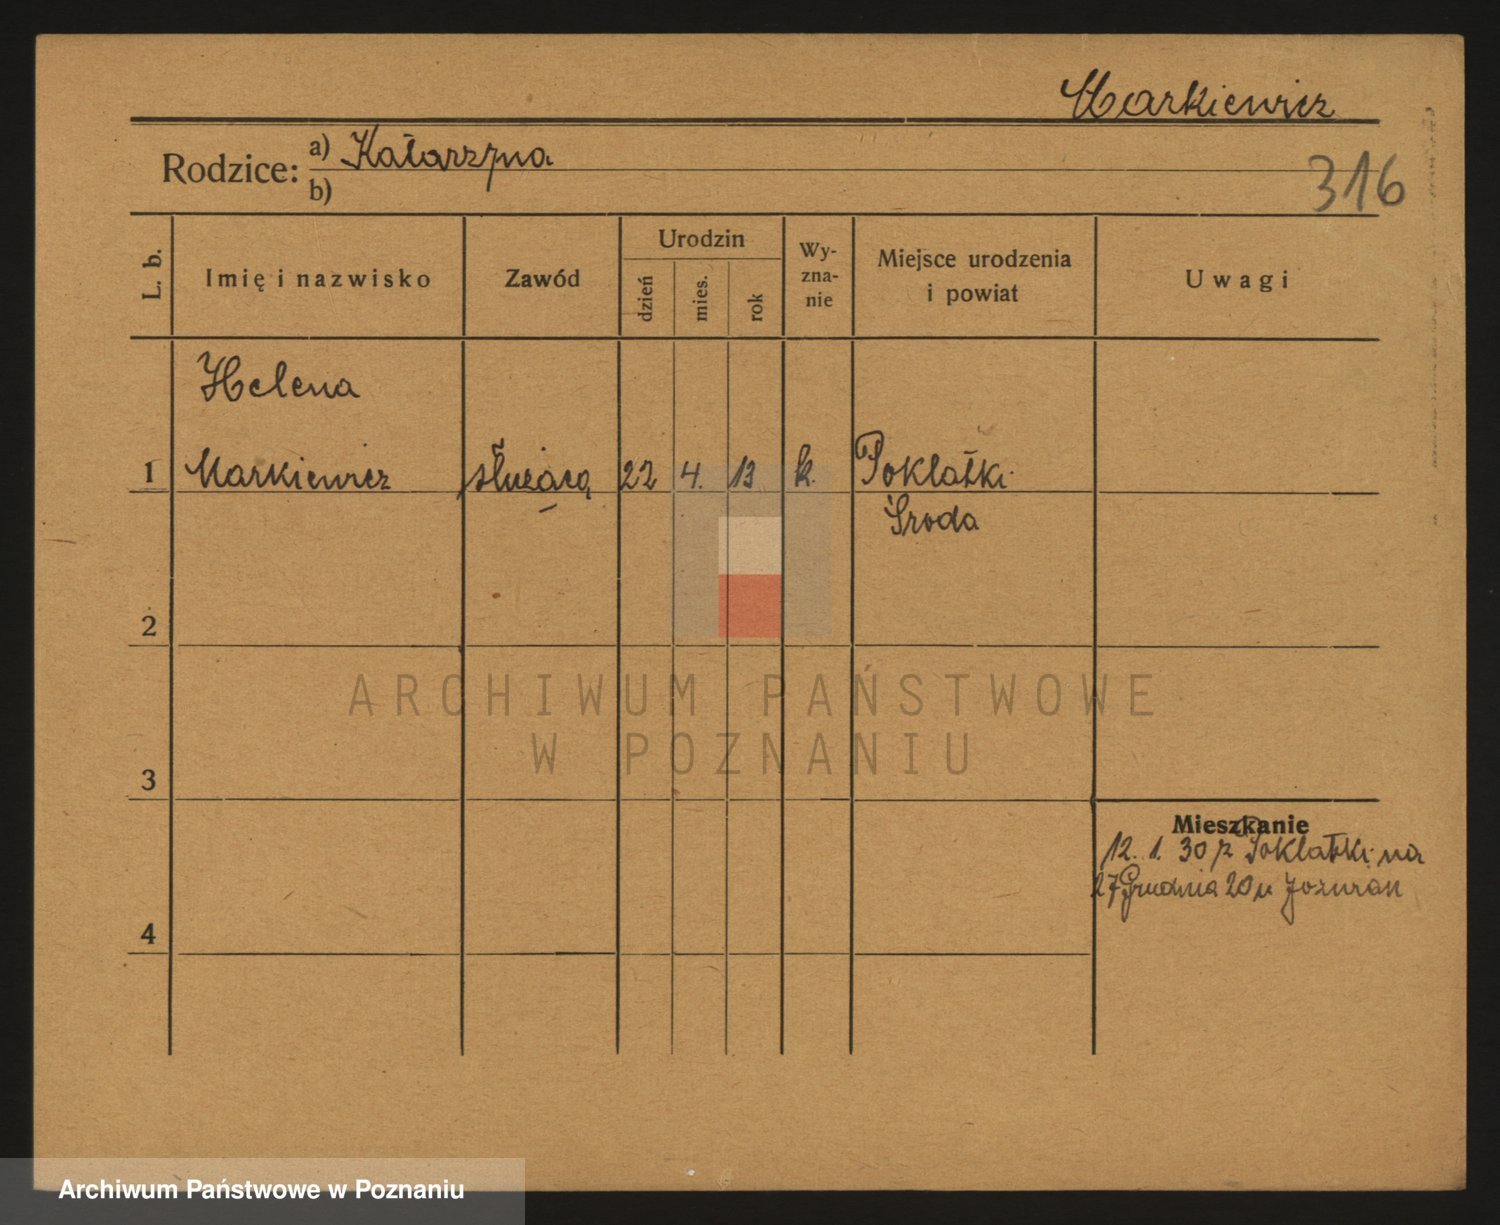 Markiewicz
Rodzice: a) Katarzyna
b)
316
L. b.
Imię i nazwisko
Zawód
Urodzin
dzień
mies.
rok
Wy-
zna-
nie
Miejsce urodzenia
i powiat
Uwagi
Helena
1 Markiewicz służąca 22 4. 13 k. Poklatki
Środa
2
3
4
Mieszkanie
12. 1. 30 z Poklatki na
27 Grudnia 20 u
ARCHIWUM PAŃSTWOWE
W POZNANIU
Archiwum Państwowe w Poznaniu